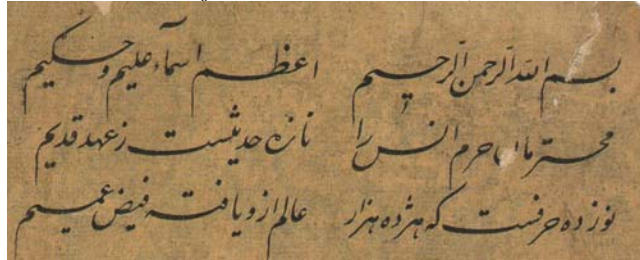 بسم الله الرحمن الرحیم اعظم اسماء علیم و حکیم
محترمان حرم انس را تازه حدیثست ز عهد قدیم
نوزده حرفست که هژده هزار عالم ازو یافته فیض عمیم